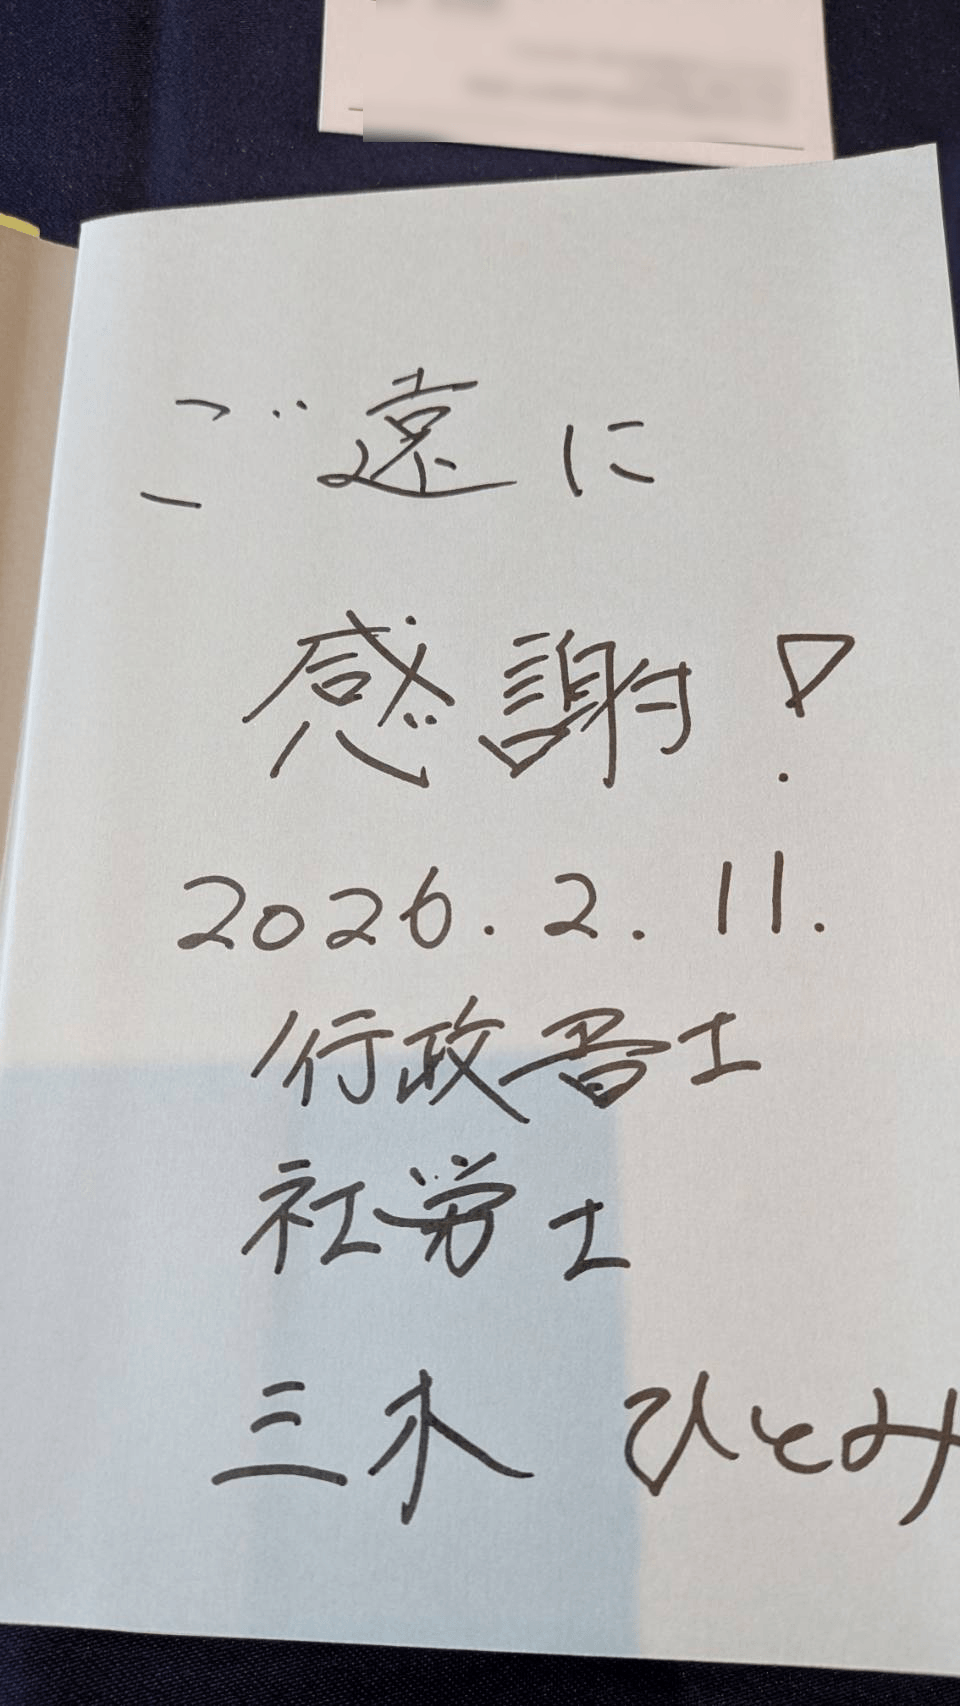 ご遠に
感謝!
2026.2.11.
行政書士
社労士
三木 ひとみ